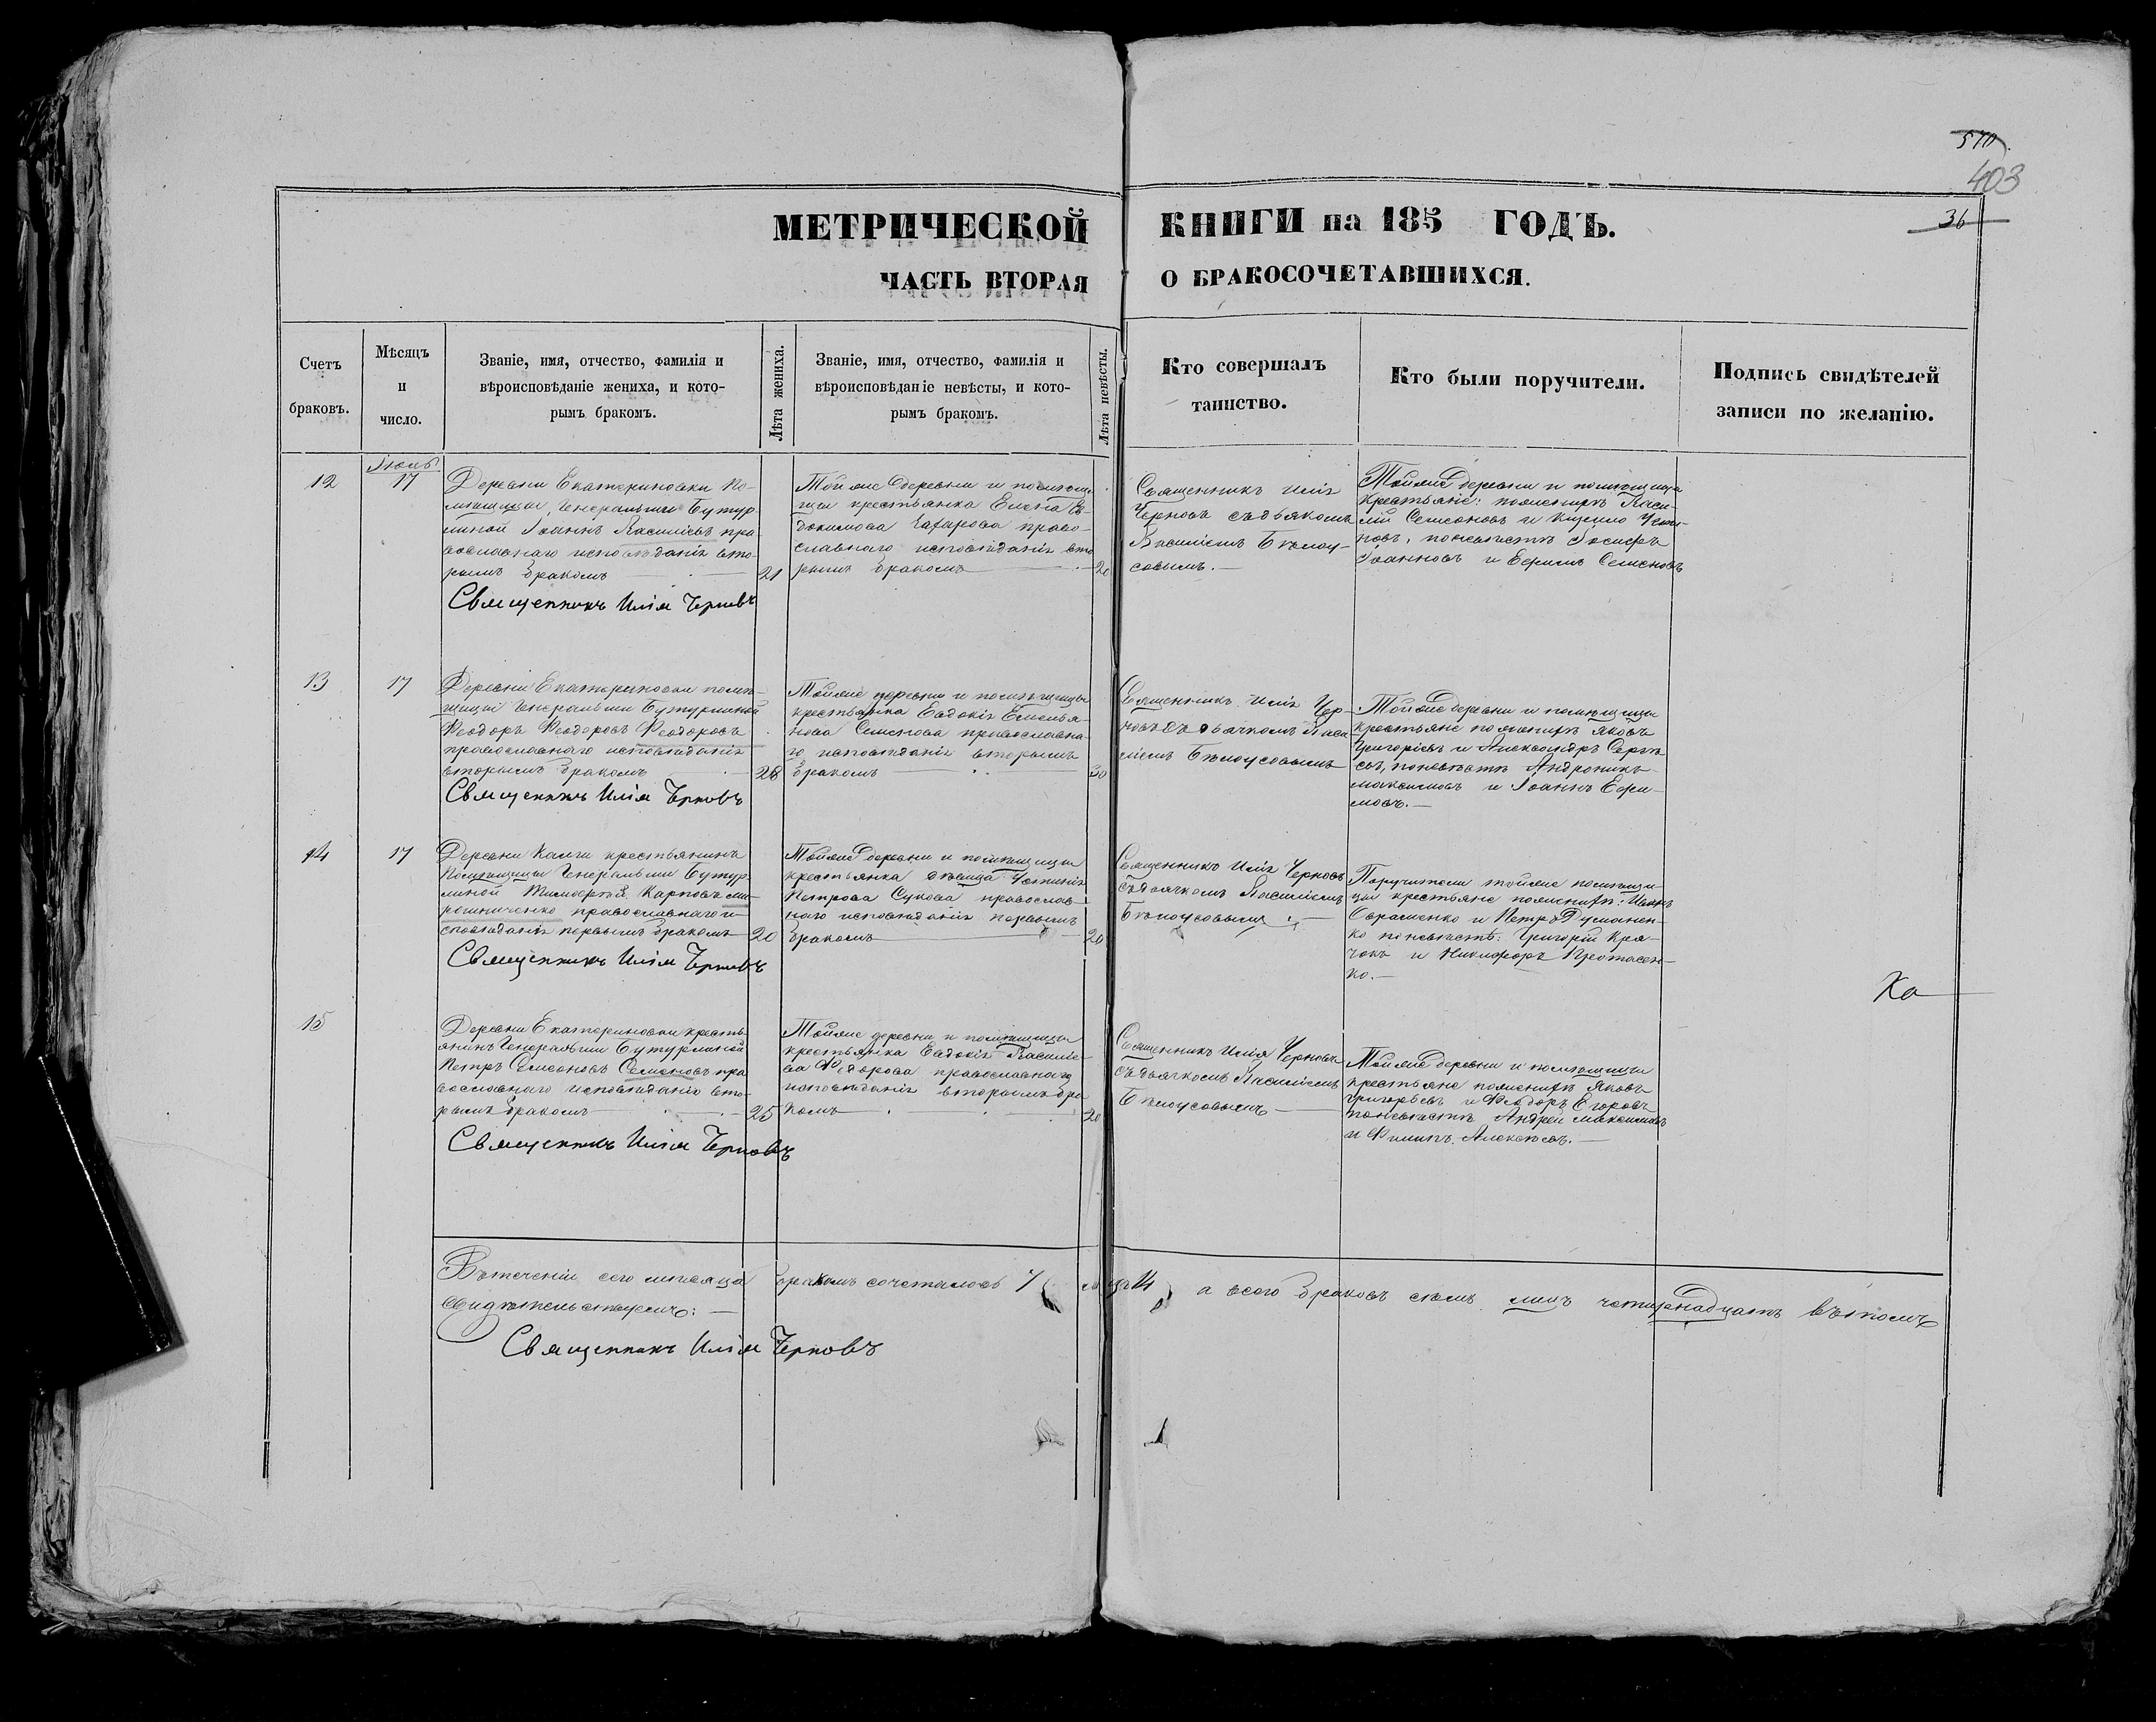 570.
403
36
МЕТРИЧЕСКОЙ КНИГИ на 185 ГОДЪ.
ЧАСТЬ ВТОРАЯ О БРАКОСОЧЕТАВШИХСЯ.
Счетъ
браковъ.
Мѣсяцъ
и
число.
Званіе, имя, отчество, фамилія и
вѣроисповѣданіе жениха, и кото-
рымъ бракомъ.
Лѣта жениха.
Званіе, имя, отчество, фамилія и
вѣроисповѣданіе невѣсты, и кото-
рымъ бракомъ.
Лѣта невѣсты.
Кто совершалъ
таинство.
Кто были поручители.
Подпись свидѣтелей
записи по желанію.
12
17
Деревни Екатериновки по-
мѣщицы, Генеральши Бутур-
линой Іоаннъ Василіевъ пра
вославнаго исповѣданія вто-
рымъ бракомъ
21
Тойже деревни и помѣщи-
цы крестьянка Елена Ев-
докимова право-
славнаго исповѣданія вто
рымъ бракомъ
20
Священникъ Илія
Черновъ съ дьякомъ
Василіемъ Бѣлоу-
совымъ.
Тойже деревни и помѣщица
крестьяне: поженихѣ Васи-
лій Семеоновъ и
поневѣстѣ Іосифъ
Іоанновъ и Ефимъ Семеновъ
Священникъ Илія Черновъ
13
17
Деревни Екатериновки помѣ-
щицы Генеральши Бутурлиной
Феодоръ Феодоровъ Феодоровъ
православнаго исповѣданія
вторымъ бракомъ
28
Тойже деревни и помѣщицы
крестьянка Евдокія Емелья-
нова Семенова православна-
го исповѣданія вторымъ
бракомъ
30
Священникъ Илія Чер-
новъ съ дьячкомъ Васи
ліемъ Бѣлоусовымъ
Тойже деревни и помѣщицы
крестьяне поженихѣ Яковъ
Григоріевъ и Александръ Сергѣ
евъ, поневѣстѣ Андроникъ
Максимовъ и Іоаннъ Ефи-
мовъ.
Священникъ Илія Черновъ
14
17
Деревни крестьянинъ
Помѣщицы Генеральши Бутур
линой Тимофей Карповъ ми-
рошниченко православнаго и
сповѣданія первымъ бракомъ
20
Тойже деревни и помѣщицы
крестьянка дѣвица Устинія
Петрова Сукова православ-
наго исповѣданія первымъ
бракомъ
20
Священникъ Илія Черновъ
съ дьячкомъ Василіемъ
Бѣлоусовымъ
Поручители тойже помѣщи
цы крестьяне поженихѣ: Иванъ
и Петръ Думанен-
ко поневѣстѣ: Григорій Кря-
чокъ и Никифоръ Протасен-
ко.
Священникъ Илія Черновъ
Ка
15
Деревни Екатериновки кресть-
янинъ Генеральши Бутурлиной
Петръ Семеоновъ Семеновъ пра
вославнаго исповѣданія вто-
рымъ бракомъ
25
Тойже деревни и помѣщицы
крестьянка Евдокія Василіе-
ва Федорова православнаго
исповѣданія вторымъ бра
комъ
20
Священникъ Илія Черновъ
съ дьячкомъ Василіемъ
Бѣлоусовымъ
Тойже деревни и помѣщицы
крестьяне поженихѣ Яковъ
Григорьевъ и Федоръ Егоровъ
поневѣстѣ Андрей Максимовъ
и Филипъ Алексѣевъ.
Священникъ Илія Черновъ
Въ теченіи сего мѣсяца бракомъ сочеталось 7 а всего браковъ семь лицъ четырнадцать въ томъ
свидѣтельствуемъ:
Священникъ Илія Черновъ